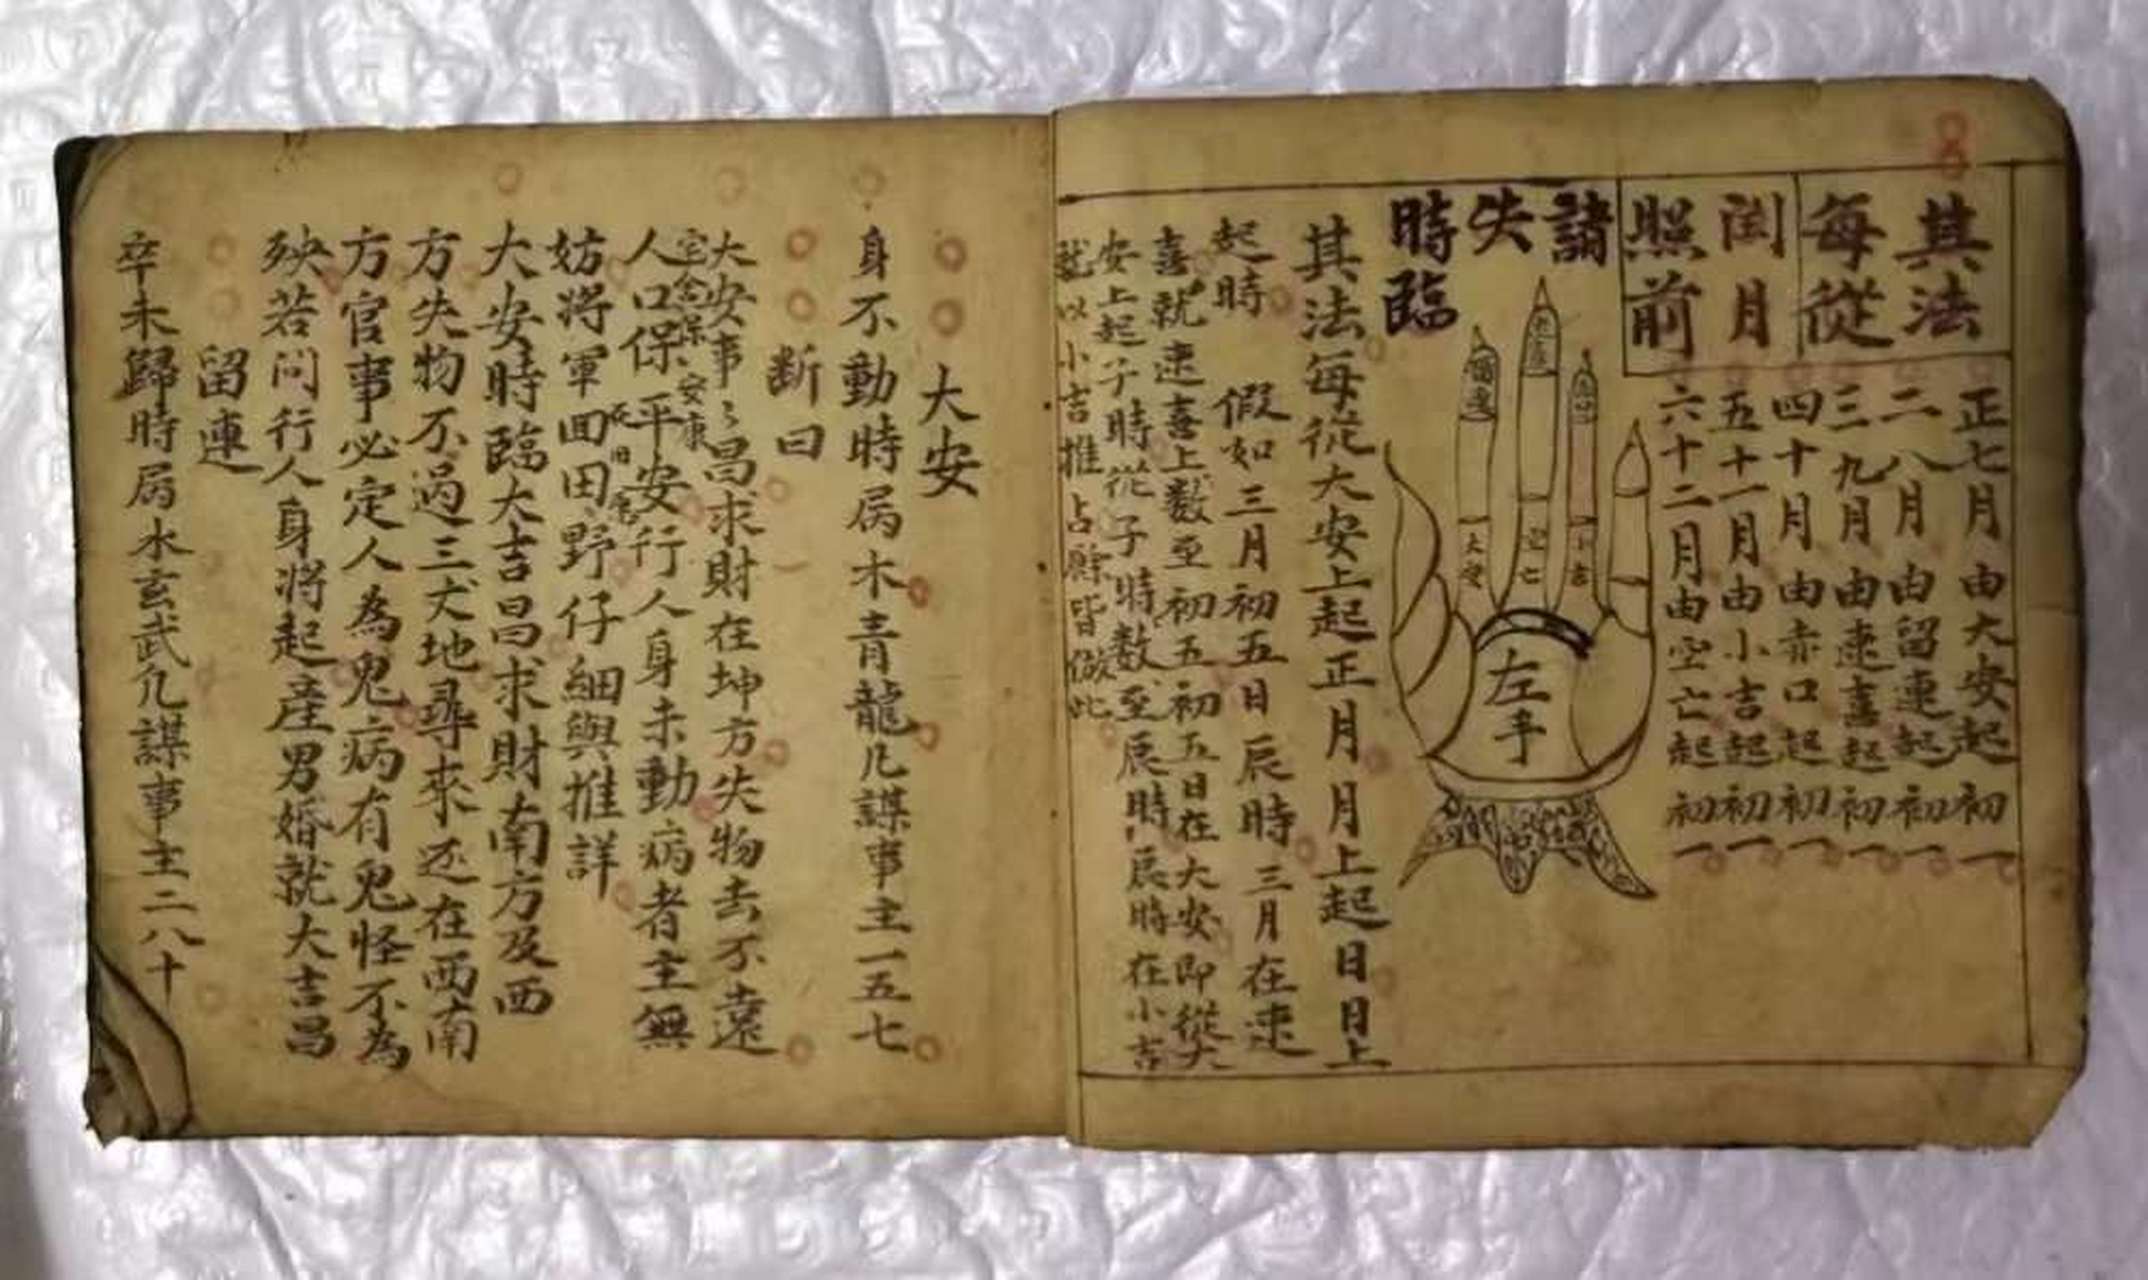 其法
每從
閏月
照前
正七月由大安起初一
二八月由留連起初一
三九月由速喜起初一
四十月由赤口起初一
五十一月由小吉起初一
六十二月由空亡起初一
諸失
時臨
留連
速喜
赤口
大安
空亡
小吉
左手
其法每從大安上起正月月上起日日上
起時 假如三月初五日辰時三月在速
喜就速喜上数至初五初五日在大安即從大
安上起子時從子時数至辰時辰時在小吉
就以小吉推占餘皆倣此
大安
身不動時屬木青龍凡謀事主一五七
断曰
大安事〻昌求財在坤方失物去不遠
宅舍保安康
人口保平安行人身未動病者主無
妨將軍囬田野仔細與推詳
大安時臨大吉昌求財南方及西
方失物不過三犬地尋來还在西南
方官事必定人為鬼病有鬼怪不為
殃若问行人身將起産男婚就大吉昌
留連
卒未歸時屬水玄武凡謀事主二八十